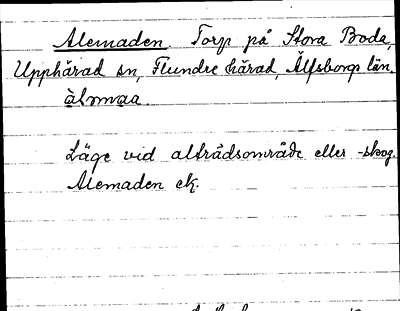 Alemaden. Torp på Stora Boda,
Upphärad sn, Flundre härad, Älfsborgs län.
àlmaa.
Läge vid alträdsområde eller -skog.
Alemaden ek.